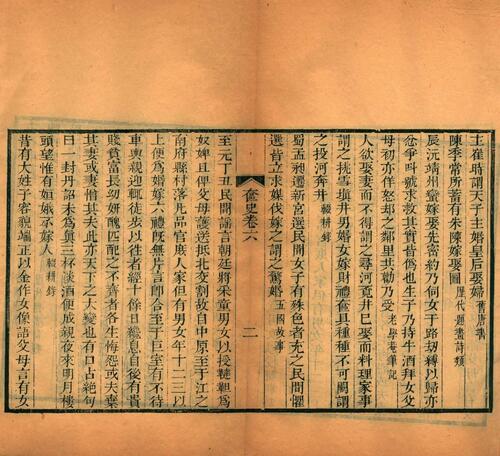 主崔時謂天子主婚皇后娶婦 舊唐書
陳季常所蓄有朱陳嫁娶圖 歷代題畫詩類
辰沅靖州蠻嫁娶先密約乃伺女于路刼縛以歸亦
忿爭叫號求救其實皆僞也生子乃持牛酒拜女父
母初亦佯怒却之鄰里共勸乃受 老學庵筆記
人欲娶妻而不得謂之尋河覓井已娶而料理家事
謂之挑雪塡井男婚女嫁財禮奩具種種不可闕謂
之投河奔井 輟耕錄
蜀孟昶遷新宮選民間女子有殊色者充之民間懼
選皆立求媒伐嫁之謂之驚婚 五國故事
奩史卷六
二
至元丁丑民間謠言朝廷將采童男女以授韃靼爲
奴婢且俾父母護送抵北交割故自中原至于江之
南府縣村落凡品官庶人家但有男女年十二三以
上便爲婚嫁六禮旣無片言卽合至于巨室有不待
車輿親迎輒徒步以往者經十餘日纔息自後有貴
賤貧富長幼妍醜匹配之不齊者各生悔怨或夫棄
其妻或妻憎其夫此亦天下之大變也有口占絕句
曰一封丹詔未爲眞三杯淡酒便成親夜來明月樓
頭望惟有姮娥不嫁人 輟耕錄
昔有大姓子客親端正以金作女像語父母言有女